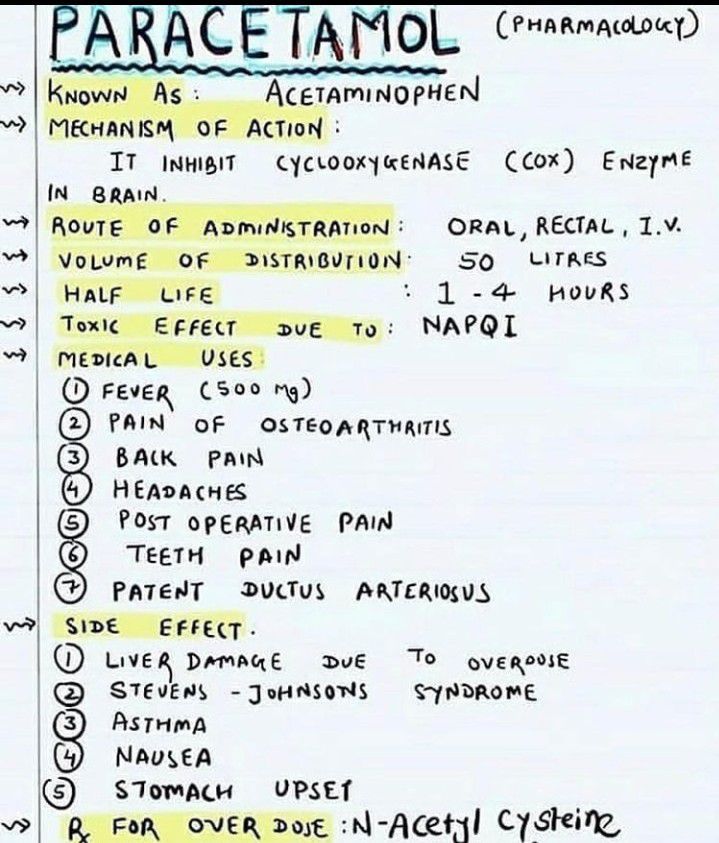 PARACETAMOL (PHARMACOLOGY)
KNOWN AS : ACETAMINOPHEN
MECHANISM OF ACTION :
IT INHIBIT CYCLOOXYGENASE (COX) ENZYME
IN BRAIN.
ROUTE OF ADMINISTRATION : ORAL, RECTAL, I.V.
VOLUME OF DISTRIBUTION : 50 LITRES
HALF LIFE : 1 - 4 HOURS
TOXIC EFFECT DUE TO : NAPQI
MEDICAL USES :
① FEVER (500 Mg)
② PAIN OF OSTEOARTHRITIS
③ BACK PAIN
④ HEADACHES
⑤ POST OPERATIVE PAIN
⑥ TEETH PAIN
⑦ PATENT DUCTUS ARTERIOSUS
SIDE EFFECT.
① LIVER DAMAGE DUE TO OVERDOSE
② STEVENS - JOHNSONS SYNDROME
③ ASTHMA
④ NAUSEA
⑤ STOMACH UPSET
Rx FOR OVER DOSE : N-Acetyl Cysteine